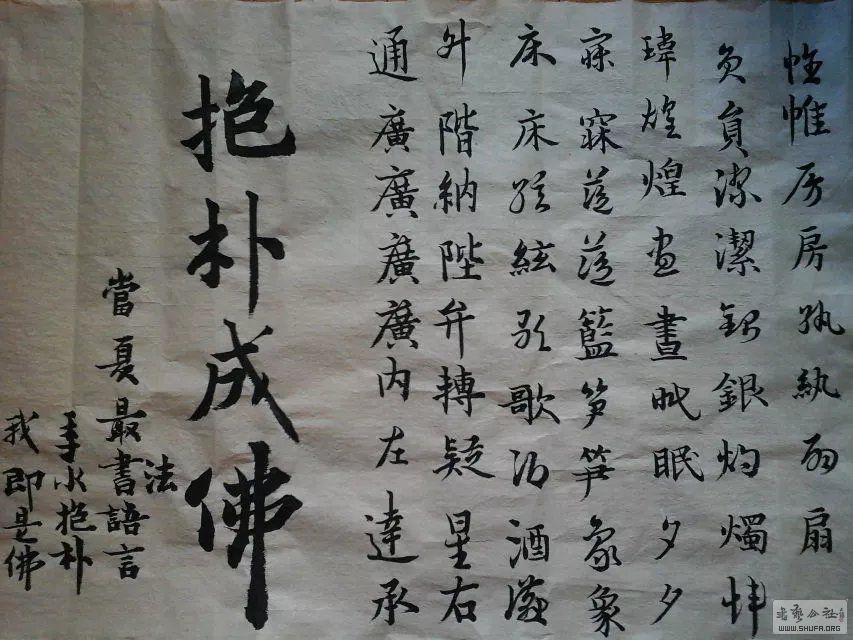 帷帷房房紈紈扇扇
員員潔潔銀銀灼燭煒
瑋煌煌晝晝眠眠夕夕
寐寐藍藍籃笋笋象象
床床絃絃歌歌酒酒
升階納陛弁轉疑星右
通廣廣廣廣内左達承
抱朴成佛
當夏最書法語言
手水抱朴
我即是佛
书艺公社
WWW.SHUFA.ORG